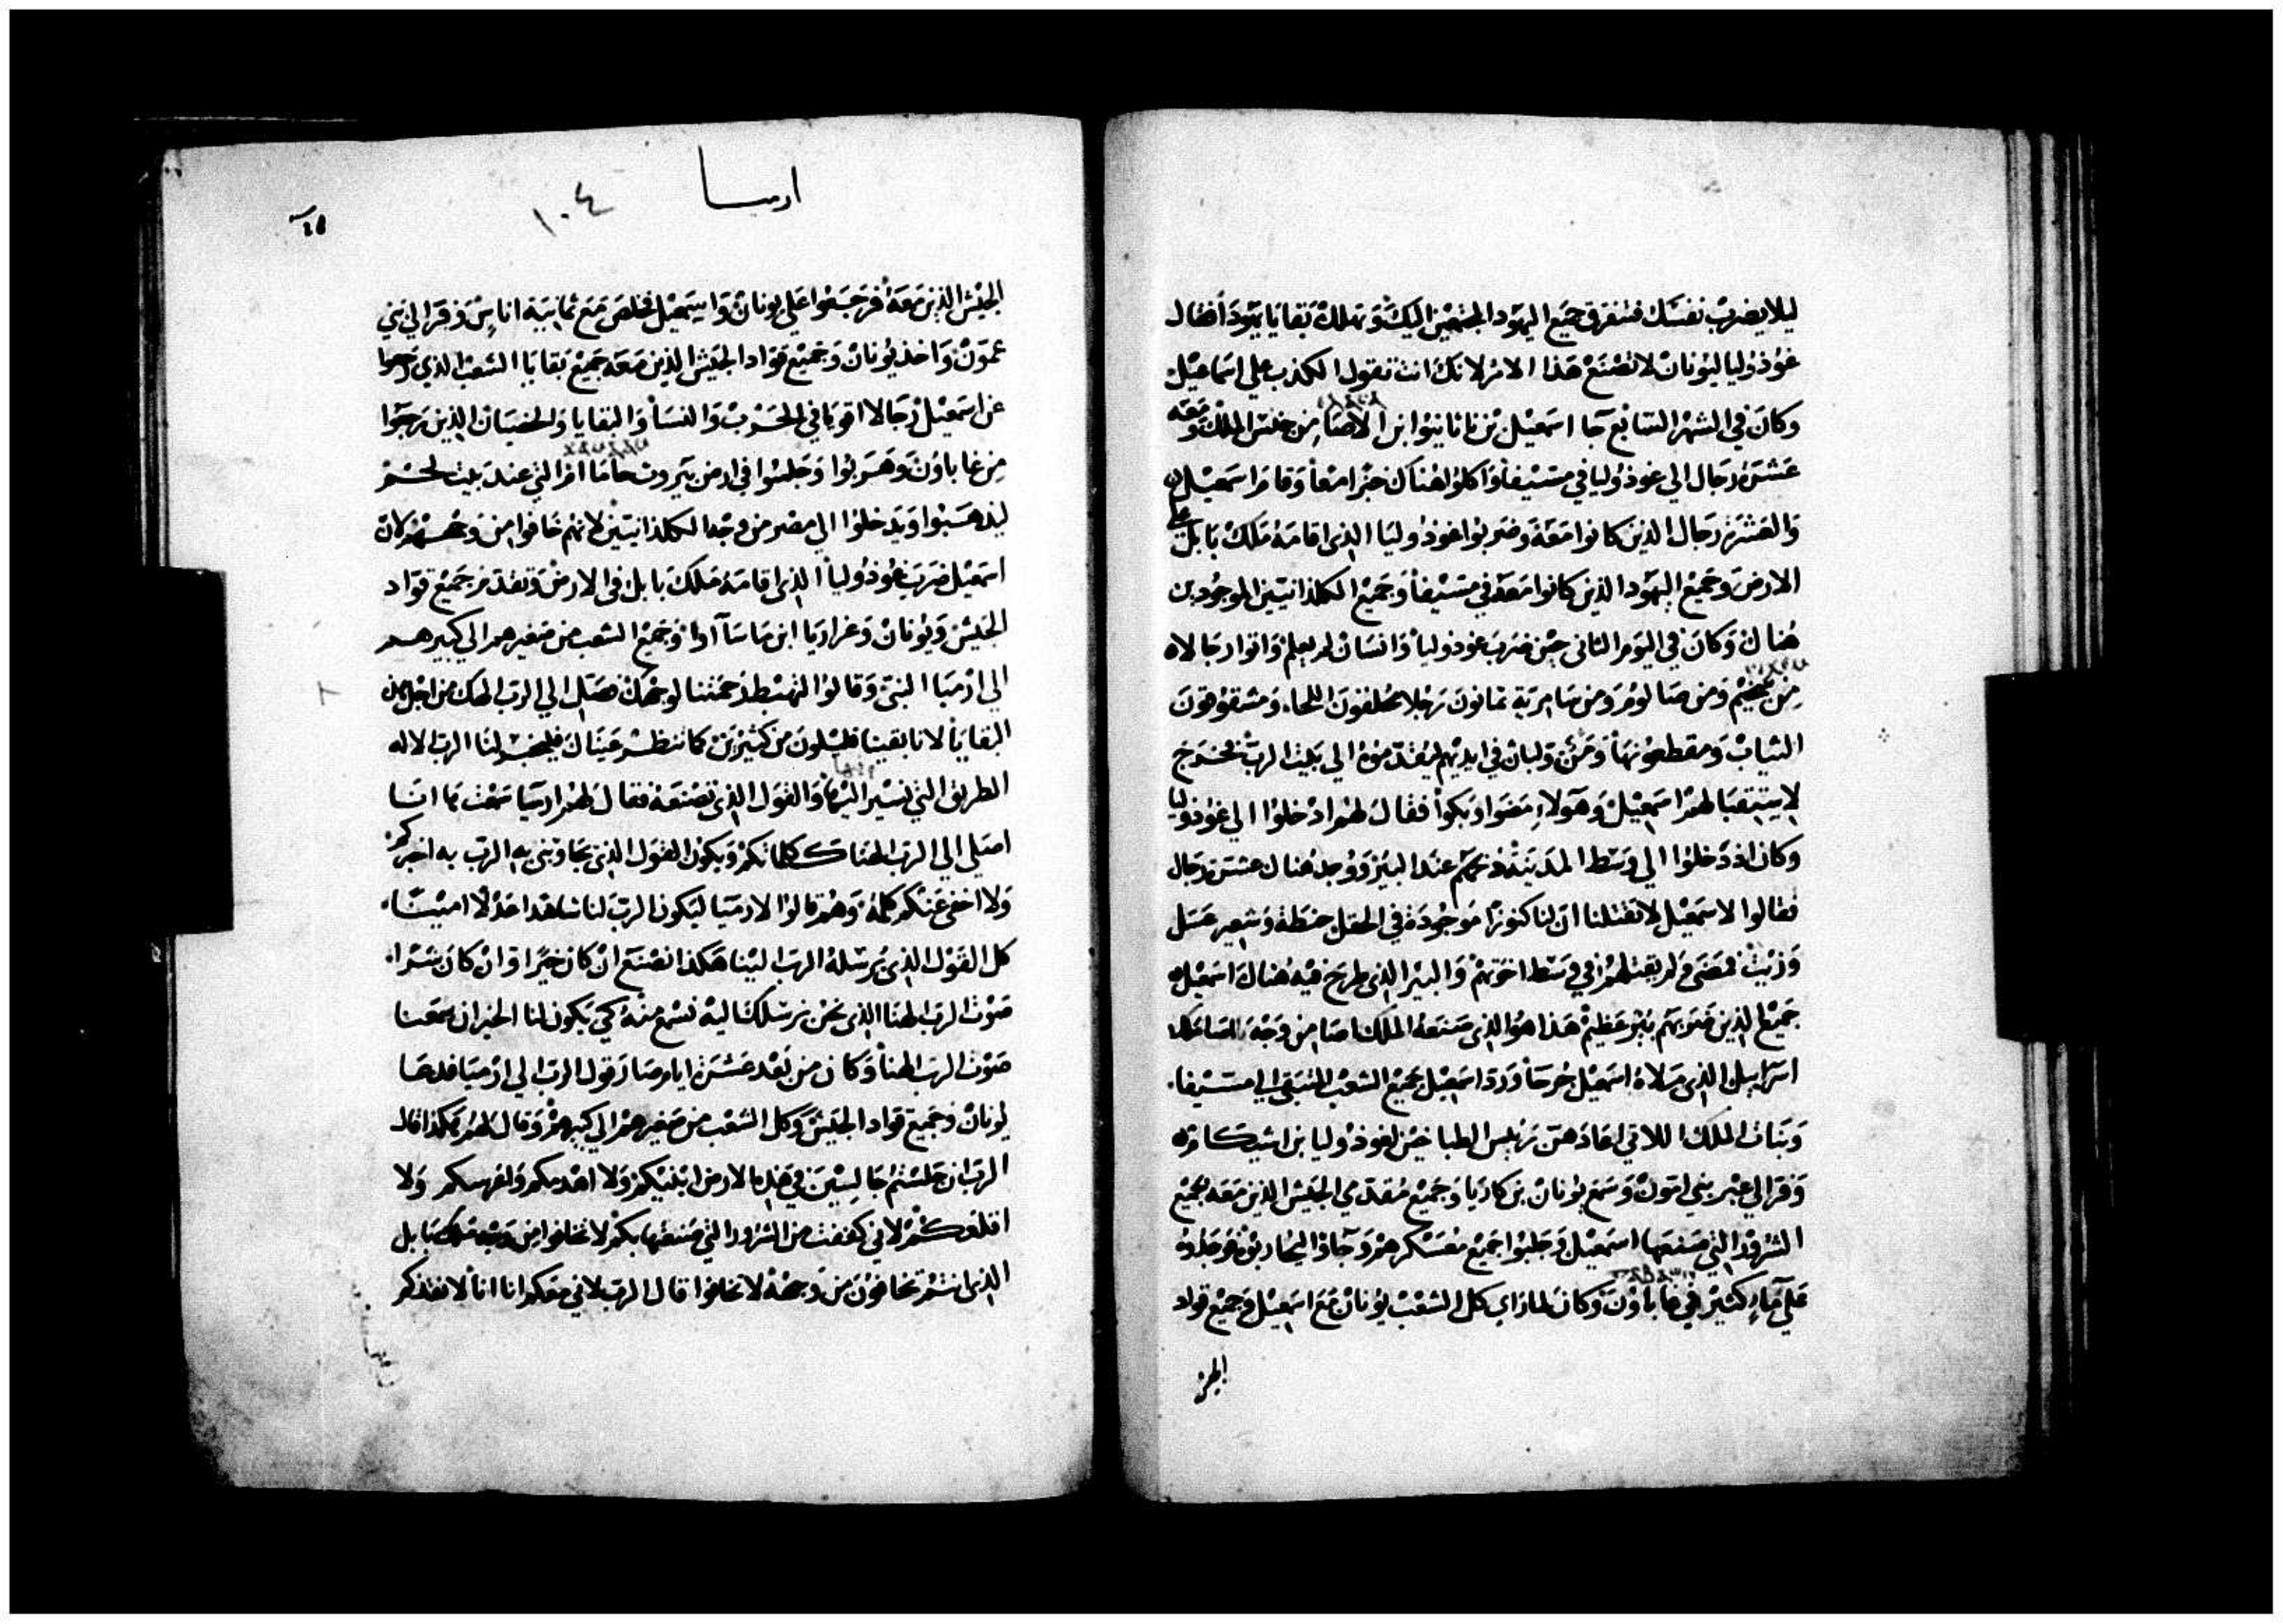 ليلا يضرب نفسك فتفرق جميع اليهود المجتمعين اليك وتهلك بقايا يهودا فقال
غوذوليا ليونان لا تصنع هذا الامر لانك انت تقول الكذب على اسماعيل
وكان في الشهر السابع جا اسمعيل بن ناثانيوا ابن الاصا من جنس الملك ومعه
عشرة رجال الي غوذوليا في مستيفا واكلوا هناك خبزا معا وقام اسمعيل
والعشرة رجال الذين كانوا معه وضربوا غوذوليا الذي اقامه ملك بابل علي
الارض وجميع اليهود الذين كانوا معه في مستيفا وجميع الكلدانيين الموجودين
هناك وكان في اليوم الثاني حين ضرب غوذوليا وانسان لم يعلم واتوا رجالاه
من ومن صالوم ومن سامرية ثمانون رجلا محلقون اللحا ومشقوقون
الثياب ومقطعون ومن ولبان في ايديهم ليقدموه الي بيت الرب فخرج
لاستقبالهم اسمعيل وهولاء مضوا وبكوا فقال لهم ادخلوا الي غوذوليا
وكان اذ دخلوا الي وسط المدينة ذبحهم عند البير ووجد هناك عشرة رجال
فقالوا لاسمعيل لا تقتلنا ان لنا كنوزا موجودة في الحقل حنطة وشعير عسل
وزيت فمضي ولم يقتلهم في وسط اخوتهم والبير الذي طرح فيه هناك اسمعيل
جميع الذين ضربهم بير عظيم هذا هو الذي صنعه الملك اصا من وجه ملك
اسرائيل الذي ملاه اسمعيل جرحا ورد اسمعيل جميع الشعب المتبقي الي مستيفا
وبنات الملك اللاتي رييس الطباخين لغوذوليا بن اشيكام
وفر الي عبر بني امون وسمع يونان بن كاريا وجميع مقدمي الجيش الذين معه جميع
الشرور التي صنعها اسمعيل وجلبوا جميع معسكرهم وجاوا ليحاربوه فوجدوه
علي ماء كثير في غاباون وكان لما راي كل الشعب يونان مع اسمعيل وجميع قواد
الجيش
ارميا
١٠٤
الجيش الذين معه فرجعوا علي يونان واسمعيل تخلص مع ثمانية اناس وفر الي بني
عمون واخذ يونان وجميع قواد الجيش الذين معه جميع بقايا الشعب الذي رجعوا
عن اسمعيل رجالا اقويا في الحرب والنسا والبقايا والخصيان الذين رجعوا
من غاباون وهربوا وجلسوا في ارض بيروت حاماام التي عند بيت لحم
ليذهبوا ويدخلوا الي مصر من وجه الكلدانيين لانهم خافوا من وجههم لان
اسمعيل ضرب غوذوليا الذي اقامه ملك بابل في الارض وتقدم جميع قواد
الجيش ويونان وعزاريا ابن ماساآ وجميع الشعب من صغيرهم الي كبيرهم
الي ارميا النبي وقالوا لتهبط رحمتنا لوجهك فصل الي الرب الهك من اجل هذه
البقايا لانا بقينا قليلون من كثيرين كما تنظر عيناك فليخبر لنا الرب الاله
الطريق التي نسير اليها والقول الذي نصنعه فقال لهم ارميا سمعت ها انا
اصلي الي الرب الهنا كلماتكم ويكون القول الذي يجاوبني به الرب به اخبركم
ولا اخفي عنكم كلمة وهم قالوا لارميا ليكون الرب لنا شاهدا عدلا امينا
كل القول الذي يرسله الرب الينا هكذا نصنع ان كان خيرا وان كان شرا
صوت الرب الهنا الذي نحن نرسلك اليه نسمع منه كي يكون لنا الخير ان سمعنا
صوت الرب الهنا وكان من بعد عشرة ايام صار قول الرب الي ارميا فدعا
يونان وجميع قواد الجيش وكل الشعب من صغيرهم الي كبيرهم وقال لهم هكذا قال
الرب ان جلستم جالسين في هذه الارض ابنيكم ولا اهدمكم واغرسكم ولا
اقلعكم لاني كففت من الشرور التي صنعتها بكم لا تخافوا من وجه ملك بابل
الذي انتم تخافون من وجهه لا تخافوا قال الرب لاني معكم انا لانقذكم